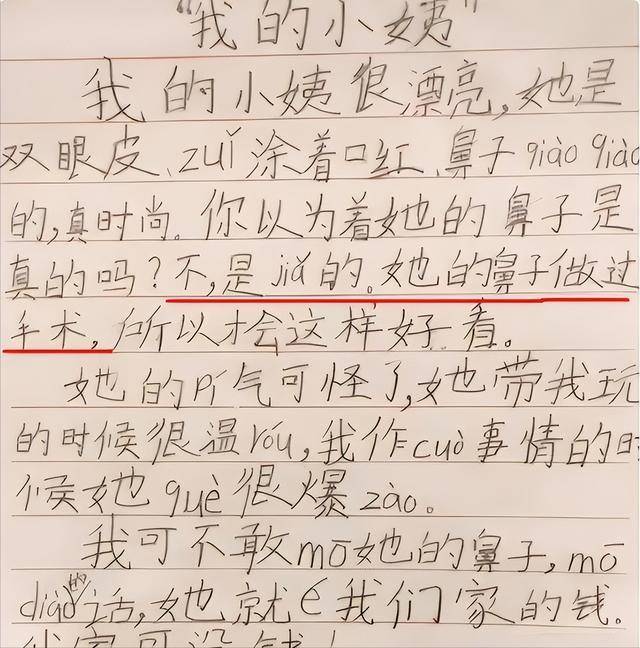 "我的小姨"
我的小姨很漂亮,她是
双眼皮、zuǐ涂着口红、鼻子qiào qiào
的,真时尚。你以为着她的鼻子是
真的吗?不,是jiǎ的。她的鼻子做过
手术,所以才会这样好看。
她的pí气可怪了,她带我玩
的时候很温róu,我作cuò事情的时
候她què很爆zào。
我可不敢mō她的鼻子,mō
diào的话,她就é我们家的钱。
我家可没钱!